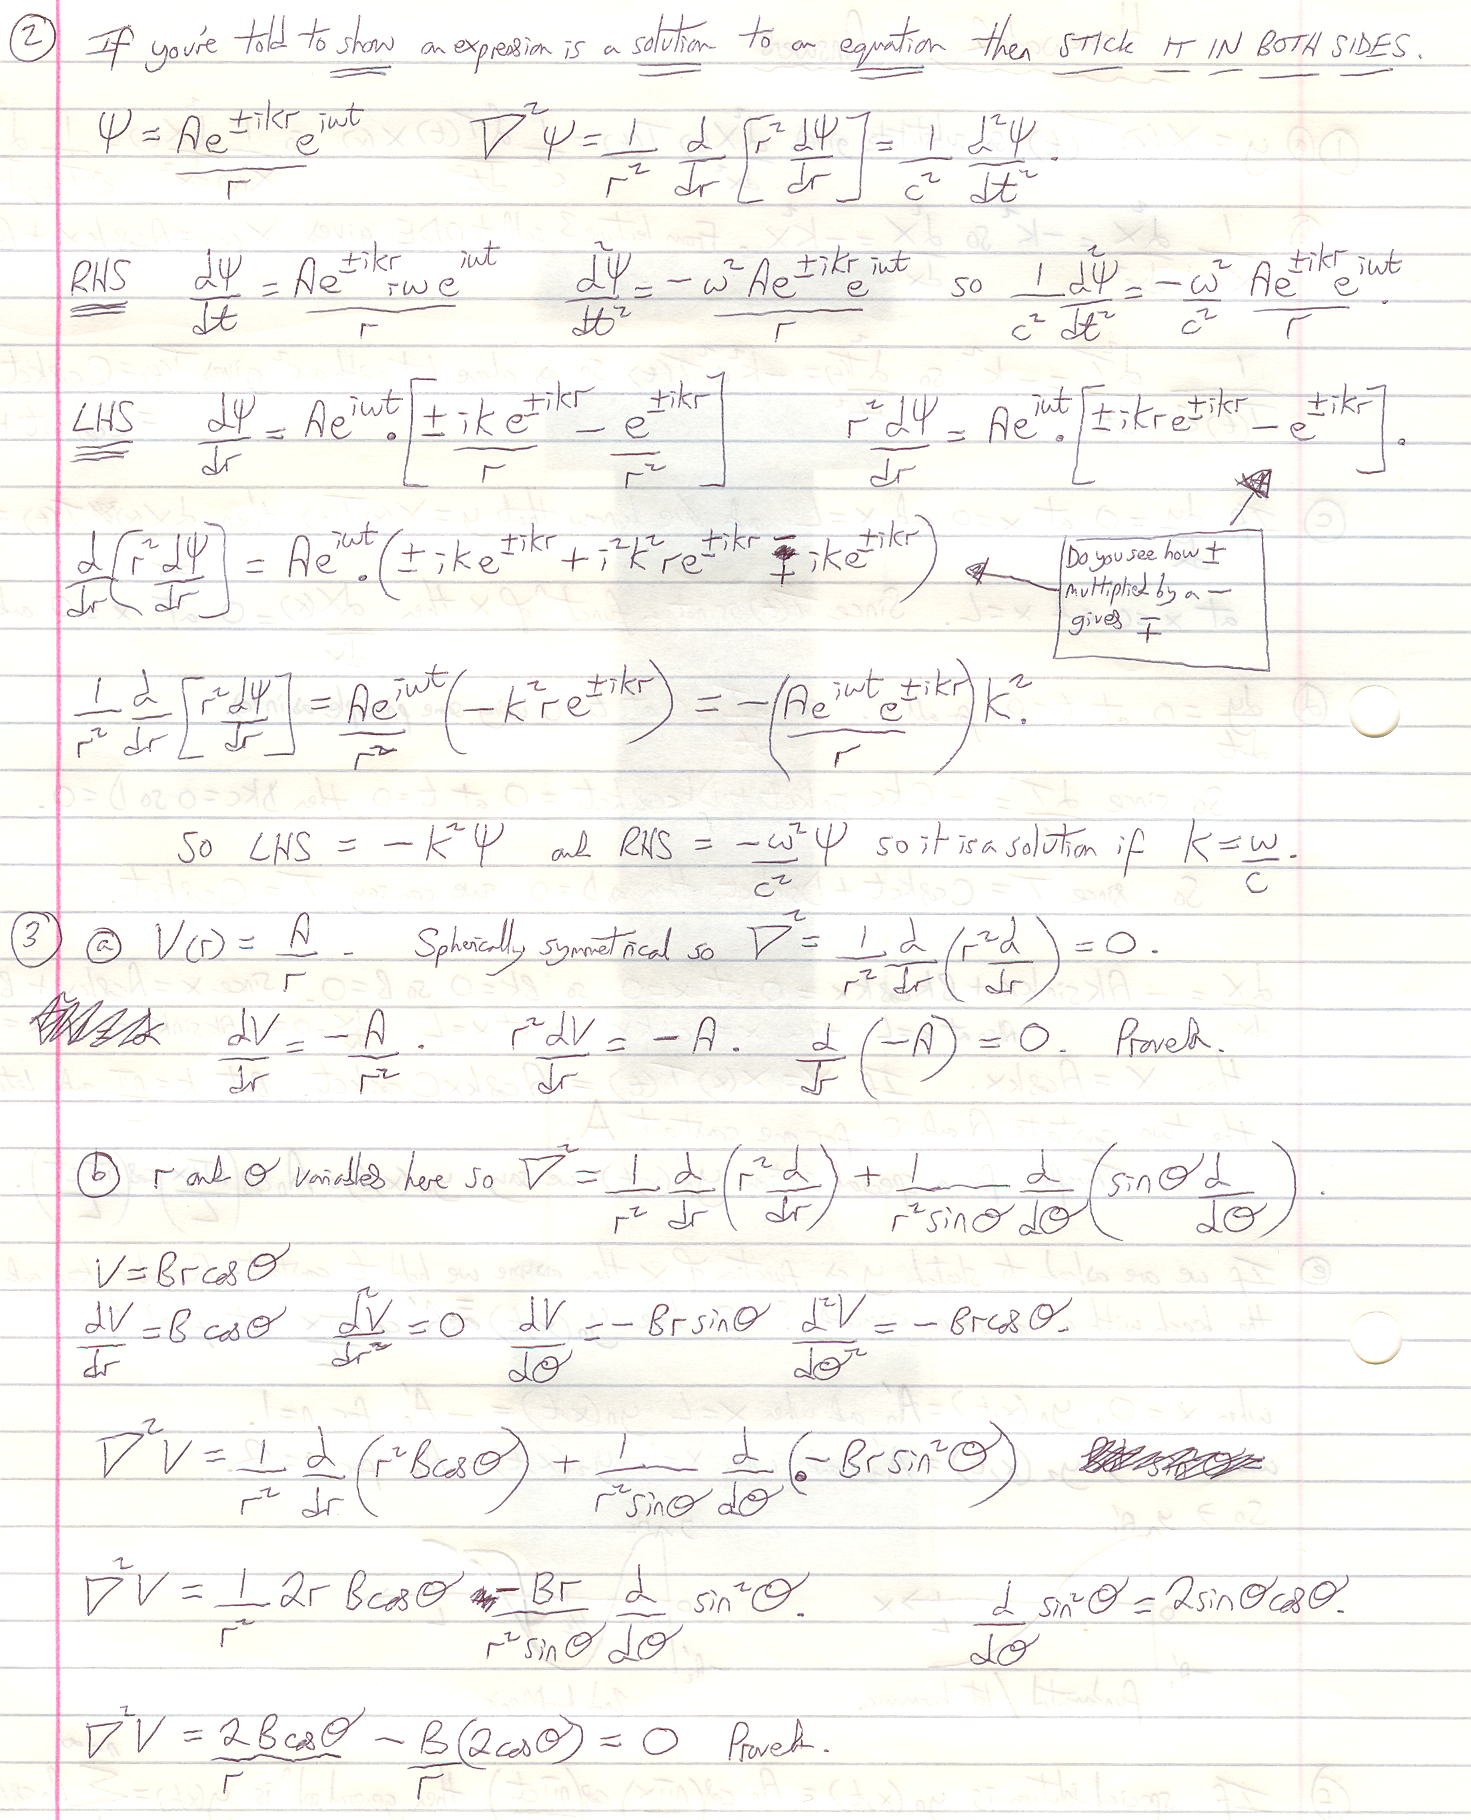 ② If you're told to show an expression is a solution to an equation then STICK IT IN BOTH SIDES.
Ψ = Ae^{±ikr}e^{iωt}/r   ∇²Ψ = 1/r² d/dr [r² dΨ/dr] = 1/c² d²Ψ/dt².
RHS   dΨ/dt = Ae^{±ikr} iωe^{iωt}/r   d²Ψ/dt² = -ω² Ae^{±ikr}e^{iωt}/r   so   1/c² d²Ψ/dt² = -ω²/c² Ae^{±ikr}e^{iωt}/r.
LHS   dΨ/dr = Ae^{iωt}.[±ike^{±ikr}/r - e^{±ikr}/r²]   r² dΨ/dr = Ae^{iωt}.[±ikre^{±ikr} - e^{±ikr}].
d/dr [r² dΨ/dr] = Ae^{iωt}.(±ike^{±ikr} + i²k²re^{±ikr} ∓ ike^{±ikr})
Do you see how ±
multiplied by a -
gives ∓
1/r² d/dr [r² dΨ/dr] = Ae^{iωt}/r² (-k²re^{±ikr}) = -(Ae^{iωt}e^{±ikr}/r)k².
So LHS = -k²Ψ and RHS = -ω²/c² Ψ so it is a solution if k = ω/c.
③ ⓐ V(r) = A/r. Spherically symmetrical so ∇² = 1/r² d/dr (r² d/dr) = 0.
dV/dr = -A/r².   r² dV/dr = -A.   d/dr (-A) = 0. Proved.
ⓑ r and θ variables here so ∇² = 1/r² d/dr (r² d/dr) + 1/r²sinθ d/dθ (sinθ d/dθ).
V = Br cosθ
dV/dr = B cosθ   d²V/dr² = 0   dV/dθ = -Br sinθ   d²V/dθ² = -Br cosθ.
∇²V = 1/r² d/dr (r²Bcosθ) + 1/r²sinθ d/dθ (-Br sin²θ)
∇²V = 1/r² 2r Bcosθ - Br/r²sinθ d/dθ sin²θ.   d/dθ sin²θ = 2sinθcosθ.
∇²V = 2Bcosθ/r - B/r (2cosθ) = 0 Proved.